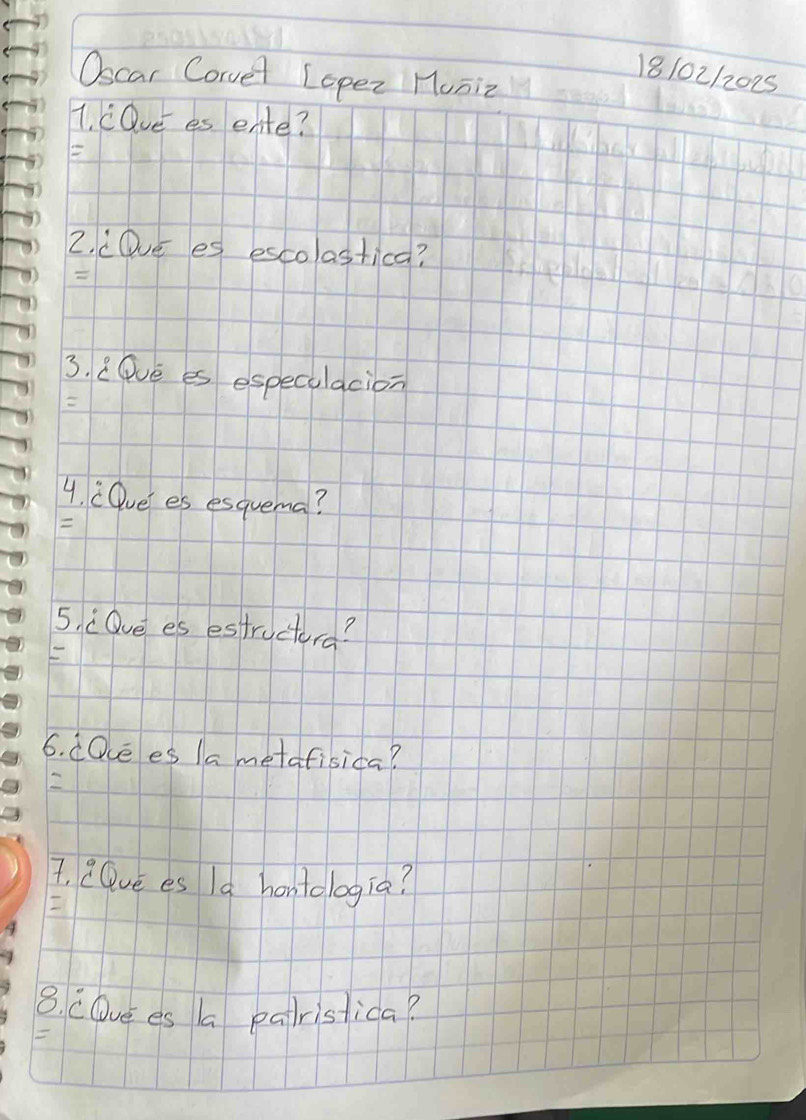 Oscar Corvet Lopez Muñiz
18/02/2025
1. ¿Qué es ente?
=
2. ¿Qué es escolastica?
=
3. ¿Qué es especulación
=
4. ¿Qué es esquema?
=
5. ¿Qué es estructura?
=
6. ¿Qué es la metafisica?
=
7. ¿Qué es la hontologia?
=
8. ¿Qué es la patristica?
=